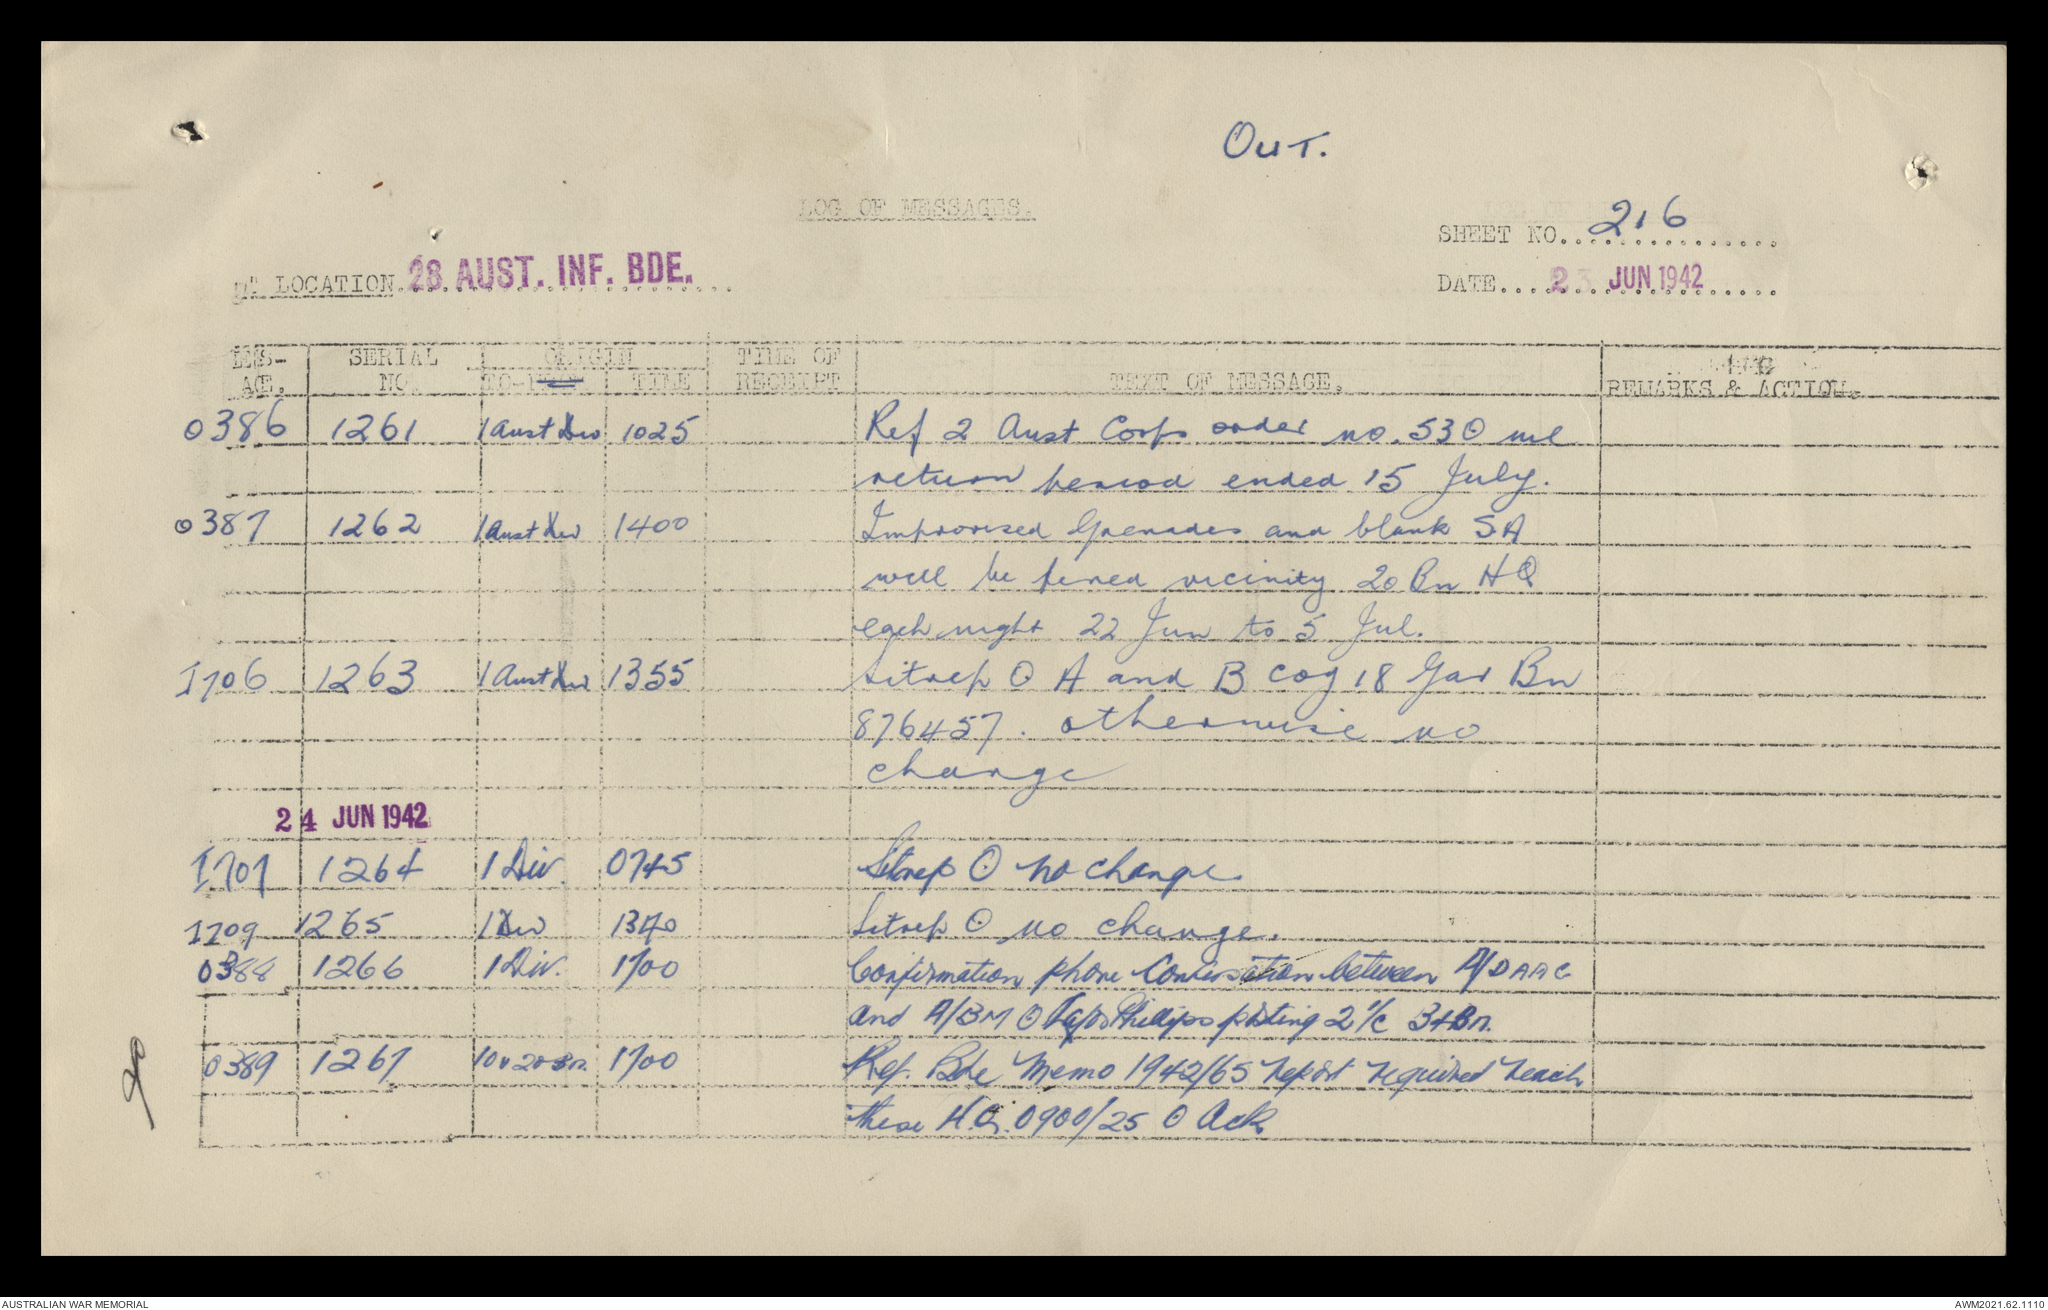 OUT.
LOG OF MESSAGES.
SHEET NO. 216
LOCATION 28 AUST. INF. BDE.
DATE 23 JUN 1942
MES- SERIAL ORIGIN TIME OF
AGE. NO. TO- TIME RECEIPT TEXT OF MESSAGE. REMARKS & ACTION.
0386 1261 1 Aust Div 1025 Ref 2 Aust Corps order no. 53 ⊙ nil
return period ended 15 July.
0387 1262 1 Aust Div 1400 Improvised Grenades and blank SA
will be fired vicinity 20 Bn HQ
each night 22 Jun to 5 Jul.
I706 1263 1 Aust Div 1355 Sitrep ⊙ A and B coy 18 Gar Bn
876457. otherwise no
change
24 JUN 1942
I707 1264 1 Div. 0745 Sitrep ⊙ no change.
I709 1265 1 Div 1340 Sitrep ⊙ no change.
0388 1266 1 Div. 1700 Confirmation phone Conversation between A/DAAG
and A/BM ⊙ Phillips posting 2 i/c Bn.
0389 1267 20 Bn. 1700 Ref. Bde Memo 1942/65 report required reach
these H.Q. 0900/25 ⊙ Ack
AUSTRALIAN WAR MEMORIAL
AWM2021.62.1110